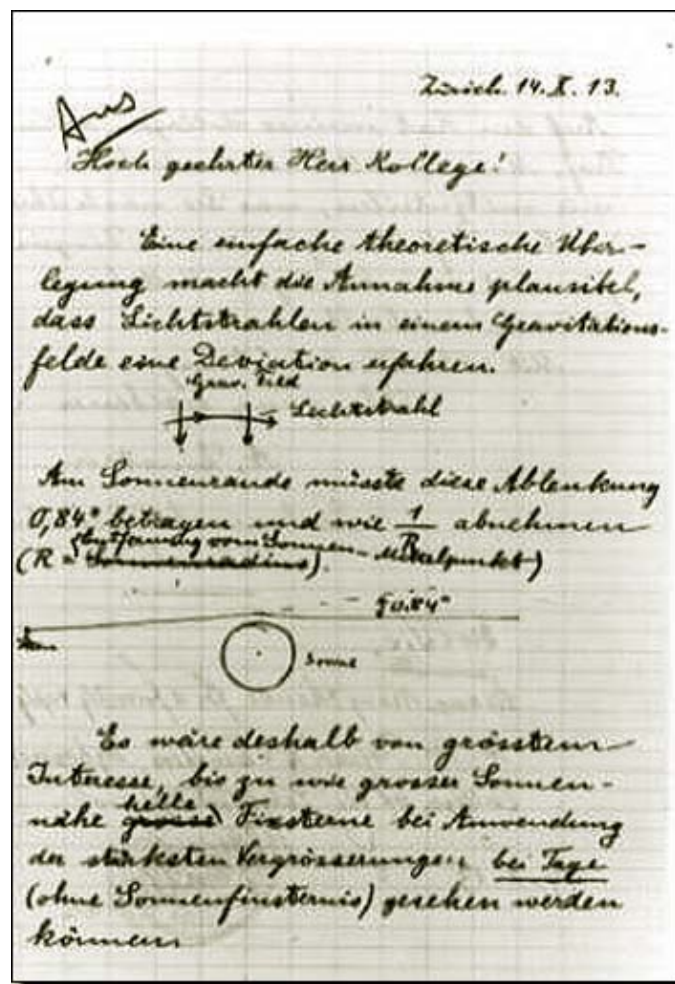 Zürich. 14. X. 13.
Aus
Hoch geehrter Herr Kollege!
Eine einfache theoretische Über-
legung macht die Annahme plausibel,
dass Lichtstrahlen in einem Gravitations-
felde eine Deviation erfahren.
Grav. Feld
Lichtstrahl
Am Sonnenrande müsste diese Ablenkung
0,84" betragen und wie 1/R abnehmen
(R = Sonnenradius) Entfernung vom Sonnen-Mittelpunkt)
0.84"
Sonne
Es wäre deshalb von grösstem
Interesse, bis zu wie grosser Sonnen-
nähe grosse helle Fixsterne bei Anwendung
der stärksten Vergrösserungen bei Tage
(ohne Sonnenfinsternis) gesehen werden
können.